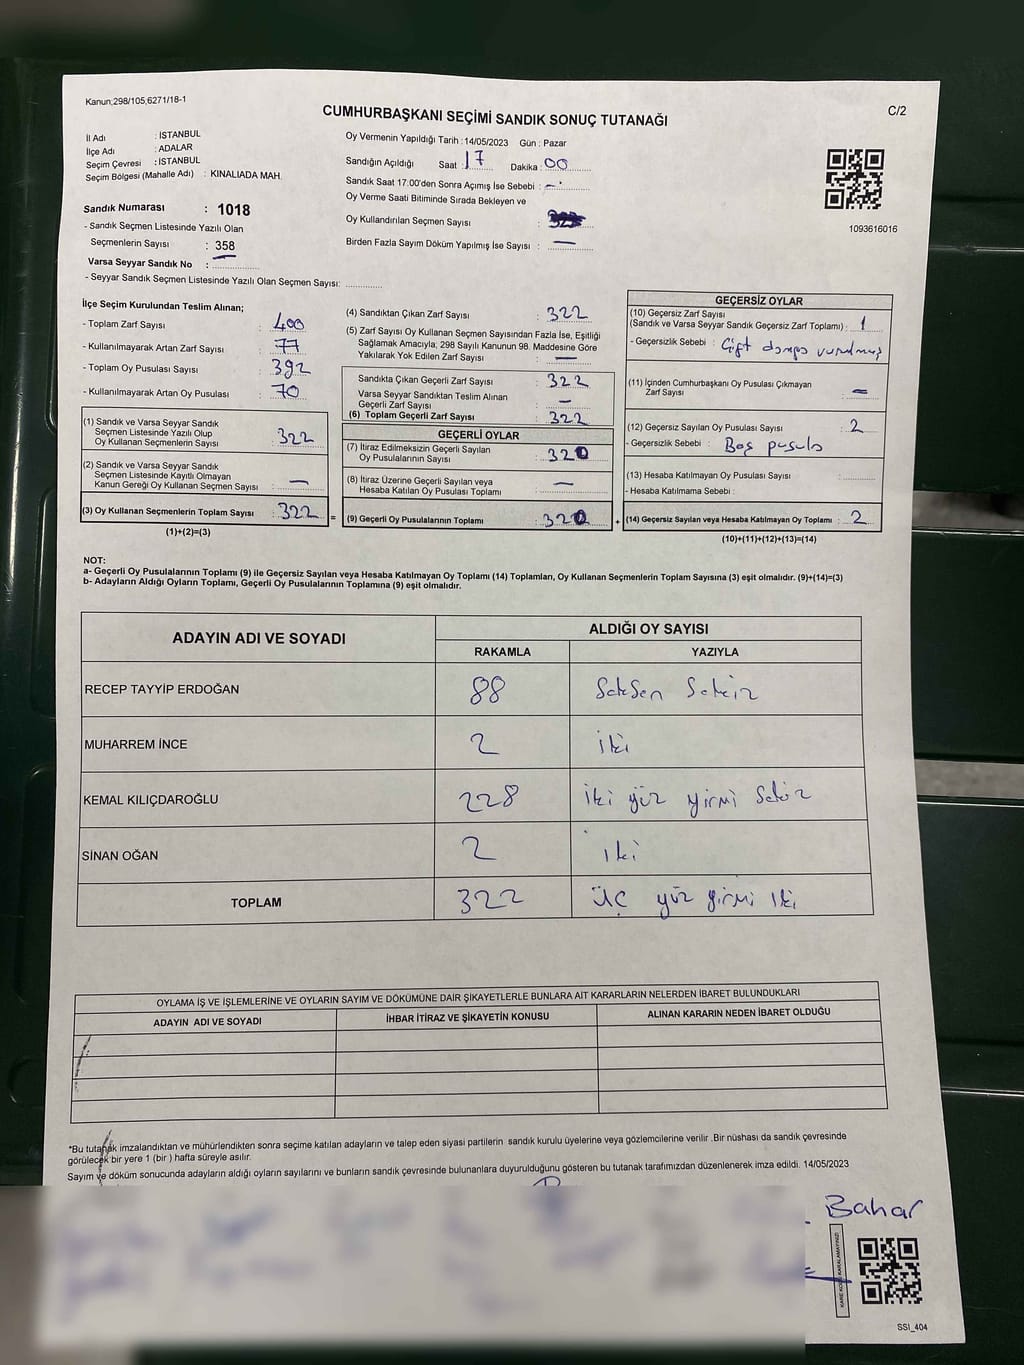 Kanun;298/105,6271/18-1
CUMHURBAŞKANI SEÇİMİ SANDIK SONUÇ TUTANAĞI
C/2
İl Adı : İSTANBUL
İlçe Adı : ADALAR
Seçim Çevresi : İSTANBUL
Seçim Bölgesi (Mahalle Adı) : KINALIADA MAH.
Oy Vermenin Yapıldığı Tarih : 14/05/2023 Gün : Pazar
Sandığın Açıldığı Saat : 17 Dakika : 00
Sandık Saat 17:00'den Sonra Açımış İse Sebebi : –
Oy Verme Saati Bitiminde Sırada Bekleyen ve
Oy Kullandırılan Seçmen Sayısı :
Birden Fazla Sayım Döküm Yapılmış İse Sayısı : –
1093616016
Sandık Numarası : 1018
- Sandık Seçmen Listesinde Yazılı Olan
Seçmenlerin Sayısı : 358
Varsa Seyyar Sandık No :
- Seyyar Sandık Seçmen Listesinde Yazılı Olan Seçmen Sayısı:
İlçe Seçim Kurulundan Teslim Alınan;
- Toplam Zarf Sayısı : 400
- Kullanılmayarak Artan Zarf Sayısı : 77
- Toplam Oy Pusulası Sayısı : 392
- Kullanılmayarak Artan Oy Pusulası : 70
(1) Sandık ve Varsa Seyyar Sandık
Seçmen Listesinde Yazılı Olup
Oy Kullanan Seçmenlerin Sayısı : 322
(2) Sandık ve Varsa Seyyar Sandık
Seçmen Listesinde Kayıtlı Olmayan
Kanun Gereği Oy Kullanan Seçmen Sayısı : –
(3) Oy Kullanan Seçmenlerin Toplam Sayısı : 322
(1)+(2)=(3)
(4) Sandıktan Çıkan Zarf Sayısı : 322
(5) Zarf Sayısı Oy Kullanan Seçmen Sayısından Fazla İse, Eşitliği
Sağlamak Amacıyla; 298 Sayılı Kanunun 98. Maddesine Göre
Yakılarak Yok Edilen Zarf Sayısı : –
Sandıkta Çıkan Geçerli Zarf Sayısı : 322
Varsa Seyyar Sandıktan Teslim Alınan
Geçerli Zarf Sayısı : –
(6) Toplam Geçerli Zarf Sayısı : 322
GEÇERLİ OYLAR
(7) İtiraz Edilmeksizin Geçerli Sayılan
Oy Pusulalarının Sayısı : 320
(8) İtiraz Üzerine Geçerli Sayılan veya
Hesaba Katılan Oy Pusulası Toplamı : –
= (9) Geçerli Oy Pusulalarının Toplamı : 320
GEÇERSİZ OYLAR
(10) Geçersiz Zarf Sayısı
(Sandık ve Varsa Seyyar Sandık Geçersiz Zarf Toplamı) : 1
- Geçersizlik Sebebi : Çift damga vurulmuş
(11) İçinden Cumhurbaşkanı Oy Pusulası Çıkmayan
Zarf Sayısı : –
(12) Geçersiz Sayılan Oy Pusulası Sayısı : 2
- Geçersizlik Sebebi : Boş pusula
(13) Hesaba Katılmayan Oy Pusulası Sayısı :
- Hesaba Katılmama Sebebi :
+ (14) Geçersiz Sayılan veya Hesaba Katılmayan Oy Toplamı : 2
(10)+(11)+(12)+(13)=(14)
NOT:
a- Geçerli Oy Pusulalarının Toplamı (9) ile Geçersiz Sayılan veya Hesaba Katılmayan Oy Toplamı (14) Toplamları, Oy Kullanan Seçmenlerin Toplam Sayısına (3) eşit olmalıdır. (9)+(14)=(3)
b- Adayların Aldığı Oyların Toplamı, Geçerli Oy Pusulalarının Toplamına (9) eşit olmalıdır.
ADAYIN ADI VE SOYADI
ALDIĞI OY SAYISI
RAKAMLA YAZIYLA
RECEP TAYYİP ERDOĞAN 88 Seksen Sekiz
MUHARREM İNCE 2 iki
KEMAL KILIÇDAROĞLU 228 iki yüz yirmi Sekiz
SİNAN OĞAN 2 iki
TOPLAM 322 üç yüz yirmi iki
OYLAMA İŞ VE İŞLEMLERİNE VE OYLARIN SAYIM VE DÖKÜMÜNE DAİR ŞİKAYETLERLE BUNLARA AİT KARARLARIN NELERDEN İBARET BULUNDUKLARI
ADAYIN ADI VE SOYADI İHBAR İTİRAZ VE ŞİKAYETİN KONUSU ALINAN KARARIN NEDEN İBARET OLDUĞU
*Bu tutanak imzalandıktan ve mühürlendikten sonra seçime katılan adayların ve talep eden siyasi partilerin sandık kurulu üyelerine veya gözlemcilerine verilir .Bir nüshası da sandık çevresinde
görülecek bir yere 1 (bir ) hafta süreyle asılır.
Sayım ve döküm sonucunda adayların aldığı oyların sayılarını ve bunların sandık çevresinde bulunanlara duyurulduğunu gösteren bu tutanak tarafımızdan düzenlenerek imza edildi. 14/05/2023
Bahar
KARE KODU KARALAMAYINIZ!
SSI_404